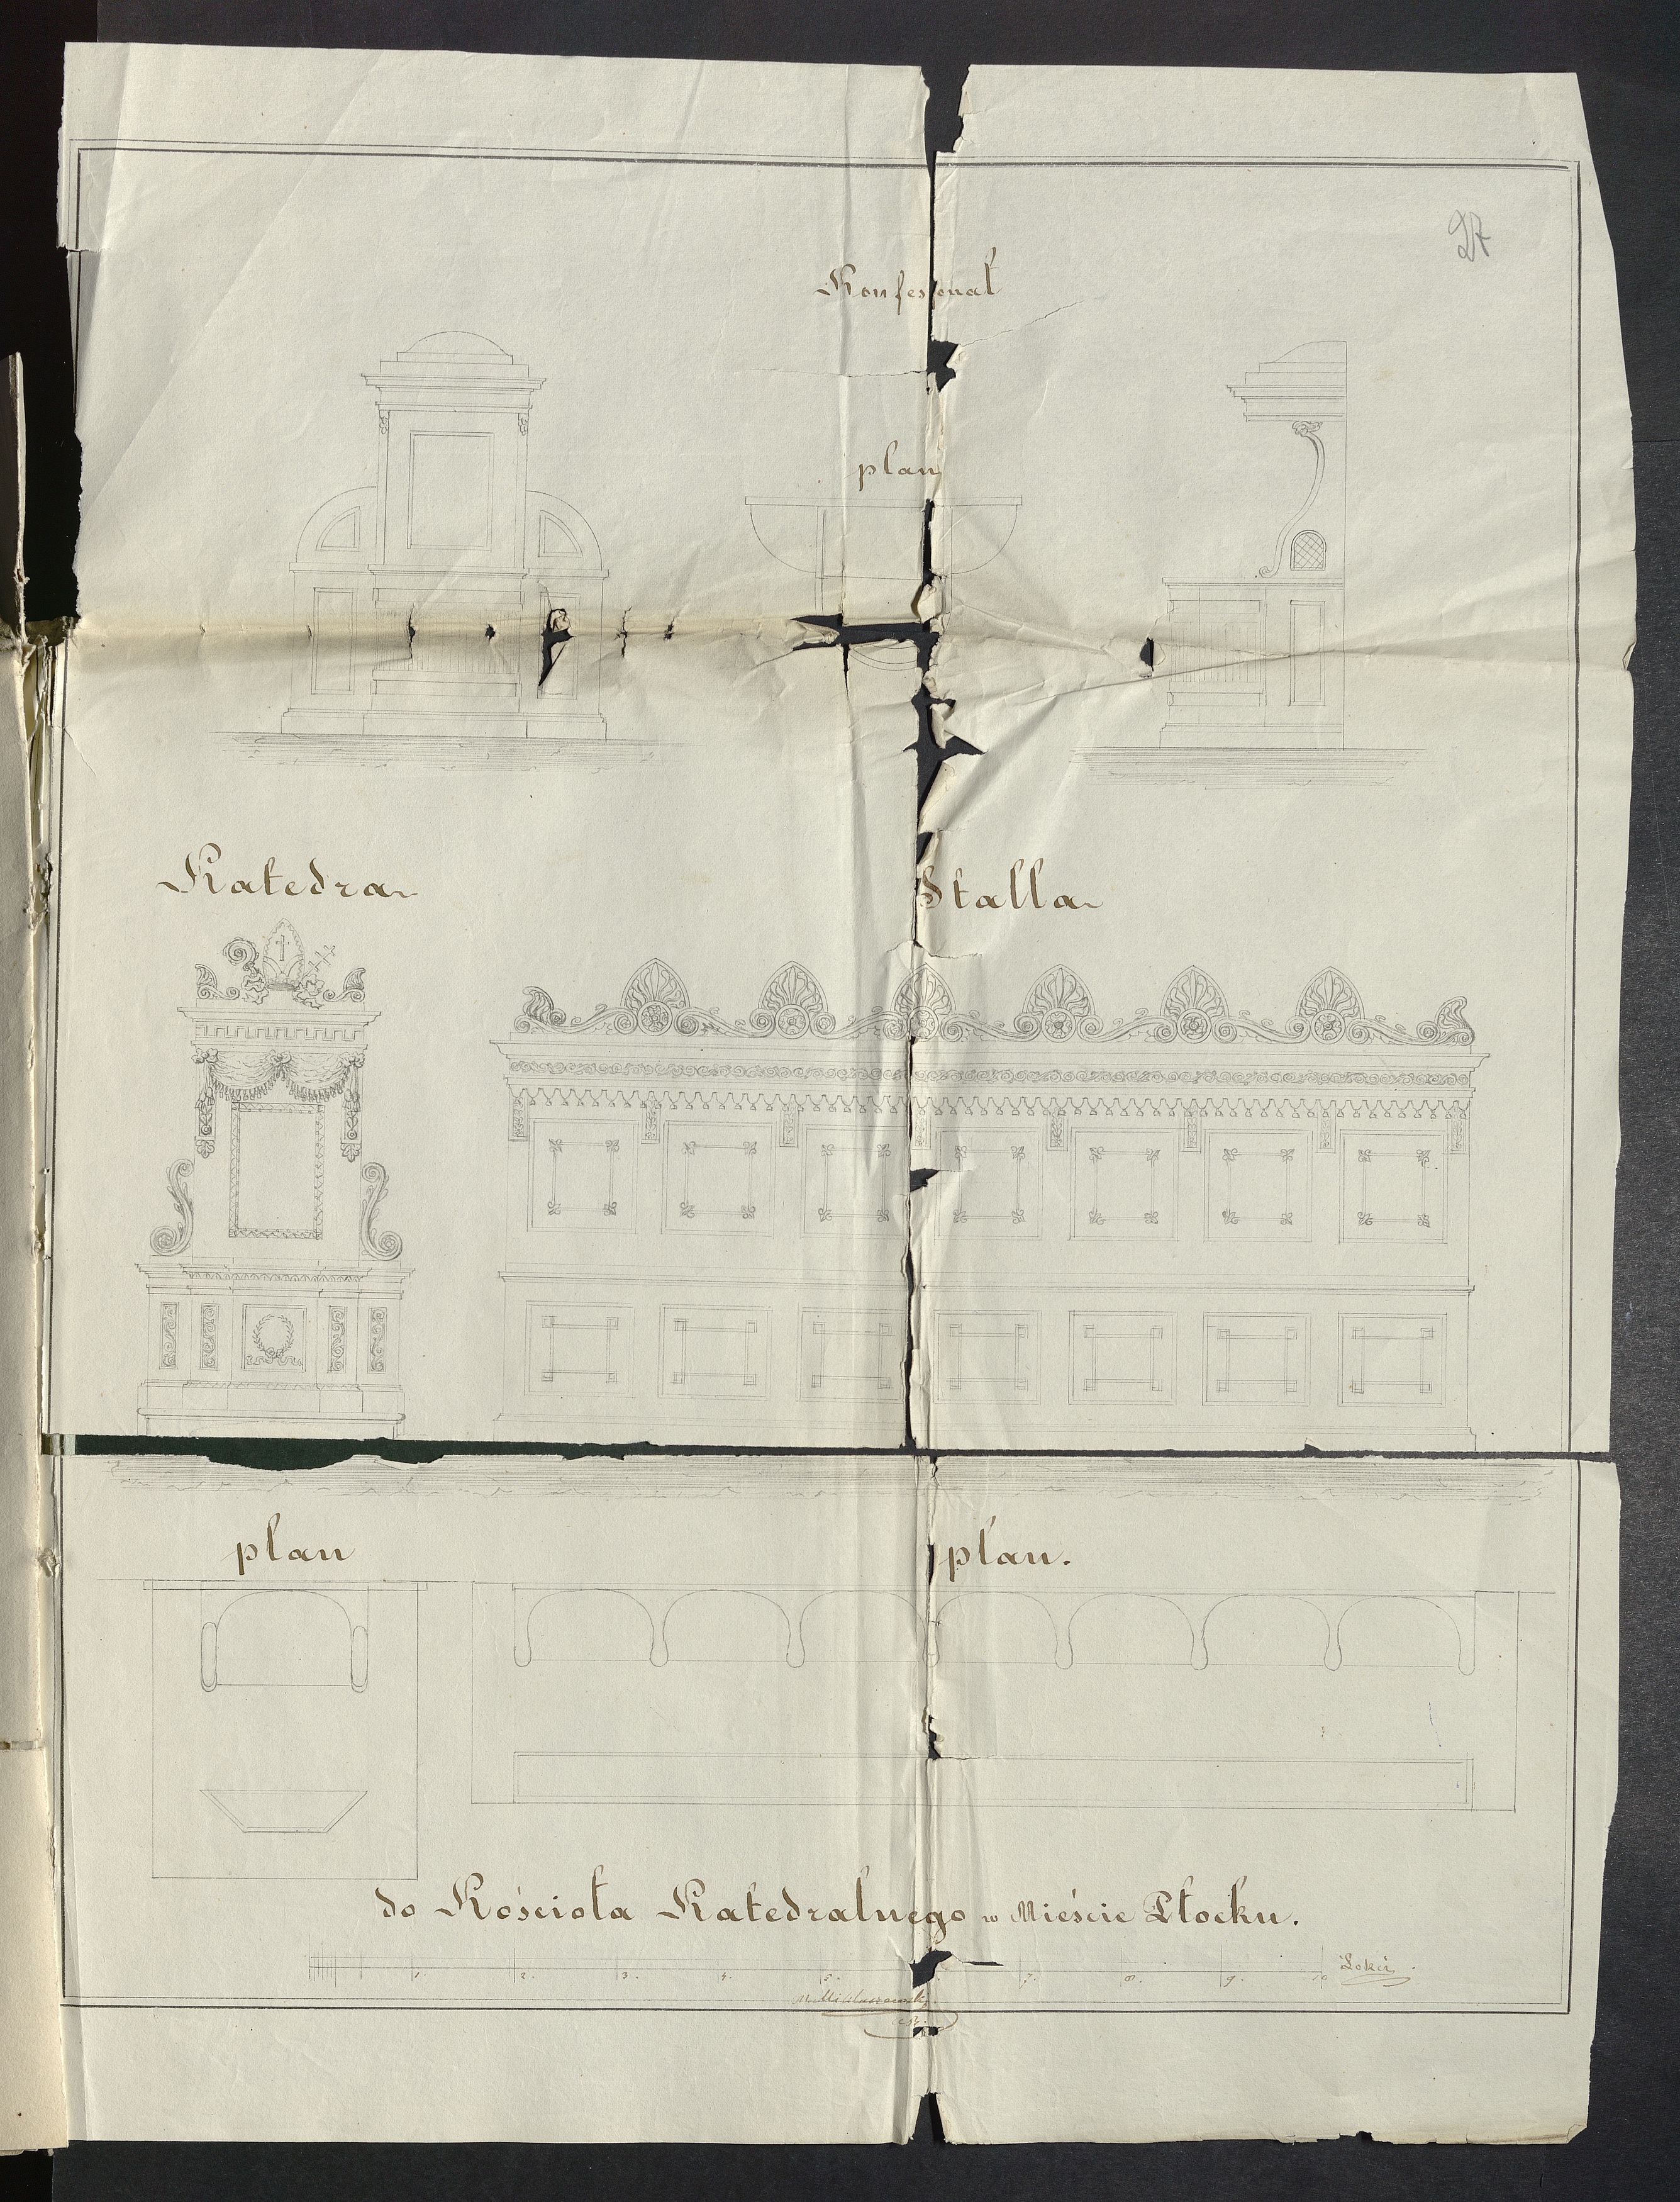 27
Konfesonał
plan
Katedra
Stalla
plan
plan.
do Kościoła Katedralnego w Mieście Płocku.
1 2. 3. 4. 5. 7. 8. 9. 10 Łokci.